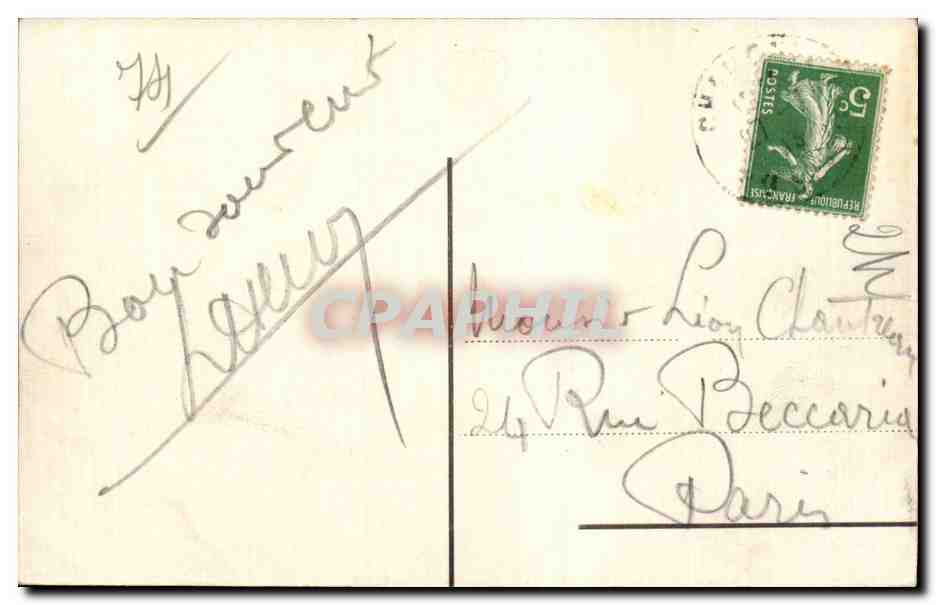 Bon souvenir
Monsieur Léon Chautreau
24 Rue Beccaria
Paris
5c
POSTES
REPUBLIQUE FRANÇAISE
CPAPHIL